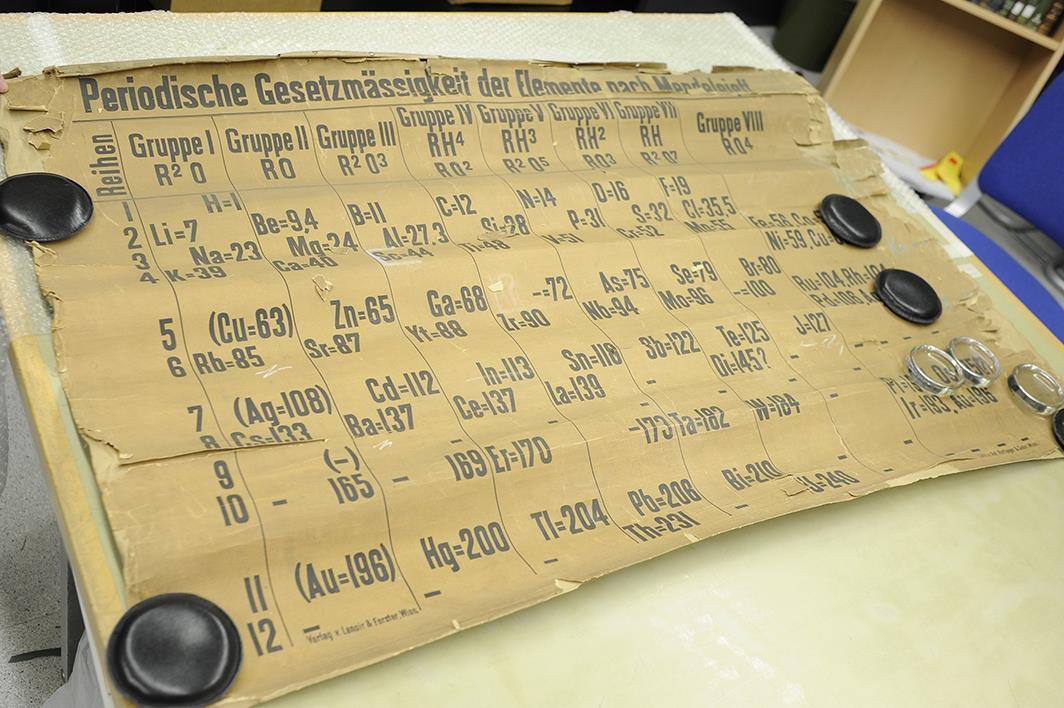 Periodische Gesetzmässigkeit der Elemente nach Mendelejeff
Reihen Gruppe I Gruppe II Gruppe III Gruppe IV Gruppe V Gruppe VI Gruppe VII Gruppe VIII
R² O RO R² O³ RH⁴ RH³ RH² RH RO⁴
RO² R² O⁵ RO³ R² O⁷
1 H=1
2 Li=7 Be=9,4 B=11 C=12 N=14 O=16 F=19
3 Na=23 Mg=24 Al=27,3 Si=28 P=31 S=32 Cl=35,5
4 K=39 Ca=40 Sc=44 Ti=48 V=51 Cr=52 Mn=55 Fe=56,
Ni=59,
5 (Cu=63) Zn=65 Ga=68 -=72 As=75 Se=79 Br=80
6 Rb=85 Sr=87 Yt=88 Zr=90 Nb=94 Mo=96 -=100 Ru=104, Rh=104
7 (Ag=108) Cd=112 In=113 Sn=118 Sb=122 Te=125 J=127
8 Cs=133 Ba=137 Ce=137 La=139 - - Di=145? - - - -
9 (-) - - - - - -
10 - 165 - 169 Er=170 -173 Ta=182 W=184 -
11 (Au=196) Hg=200 Tl=204 Pb=206 Bi=210 - -
12 - - - Th=231 - U=240 - - - -
Verlag v. Lenoir & Forster, Wien.